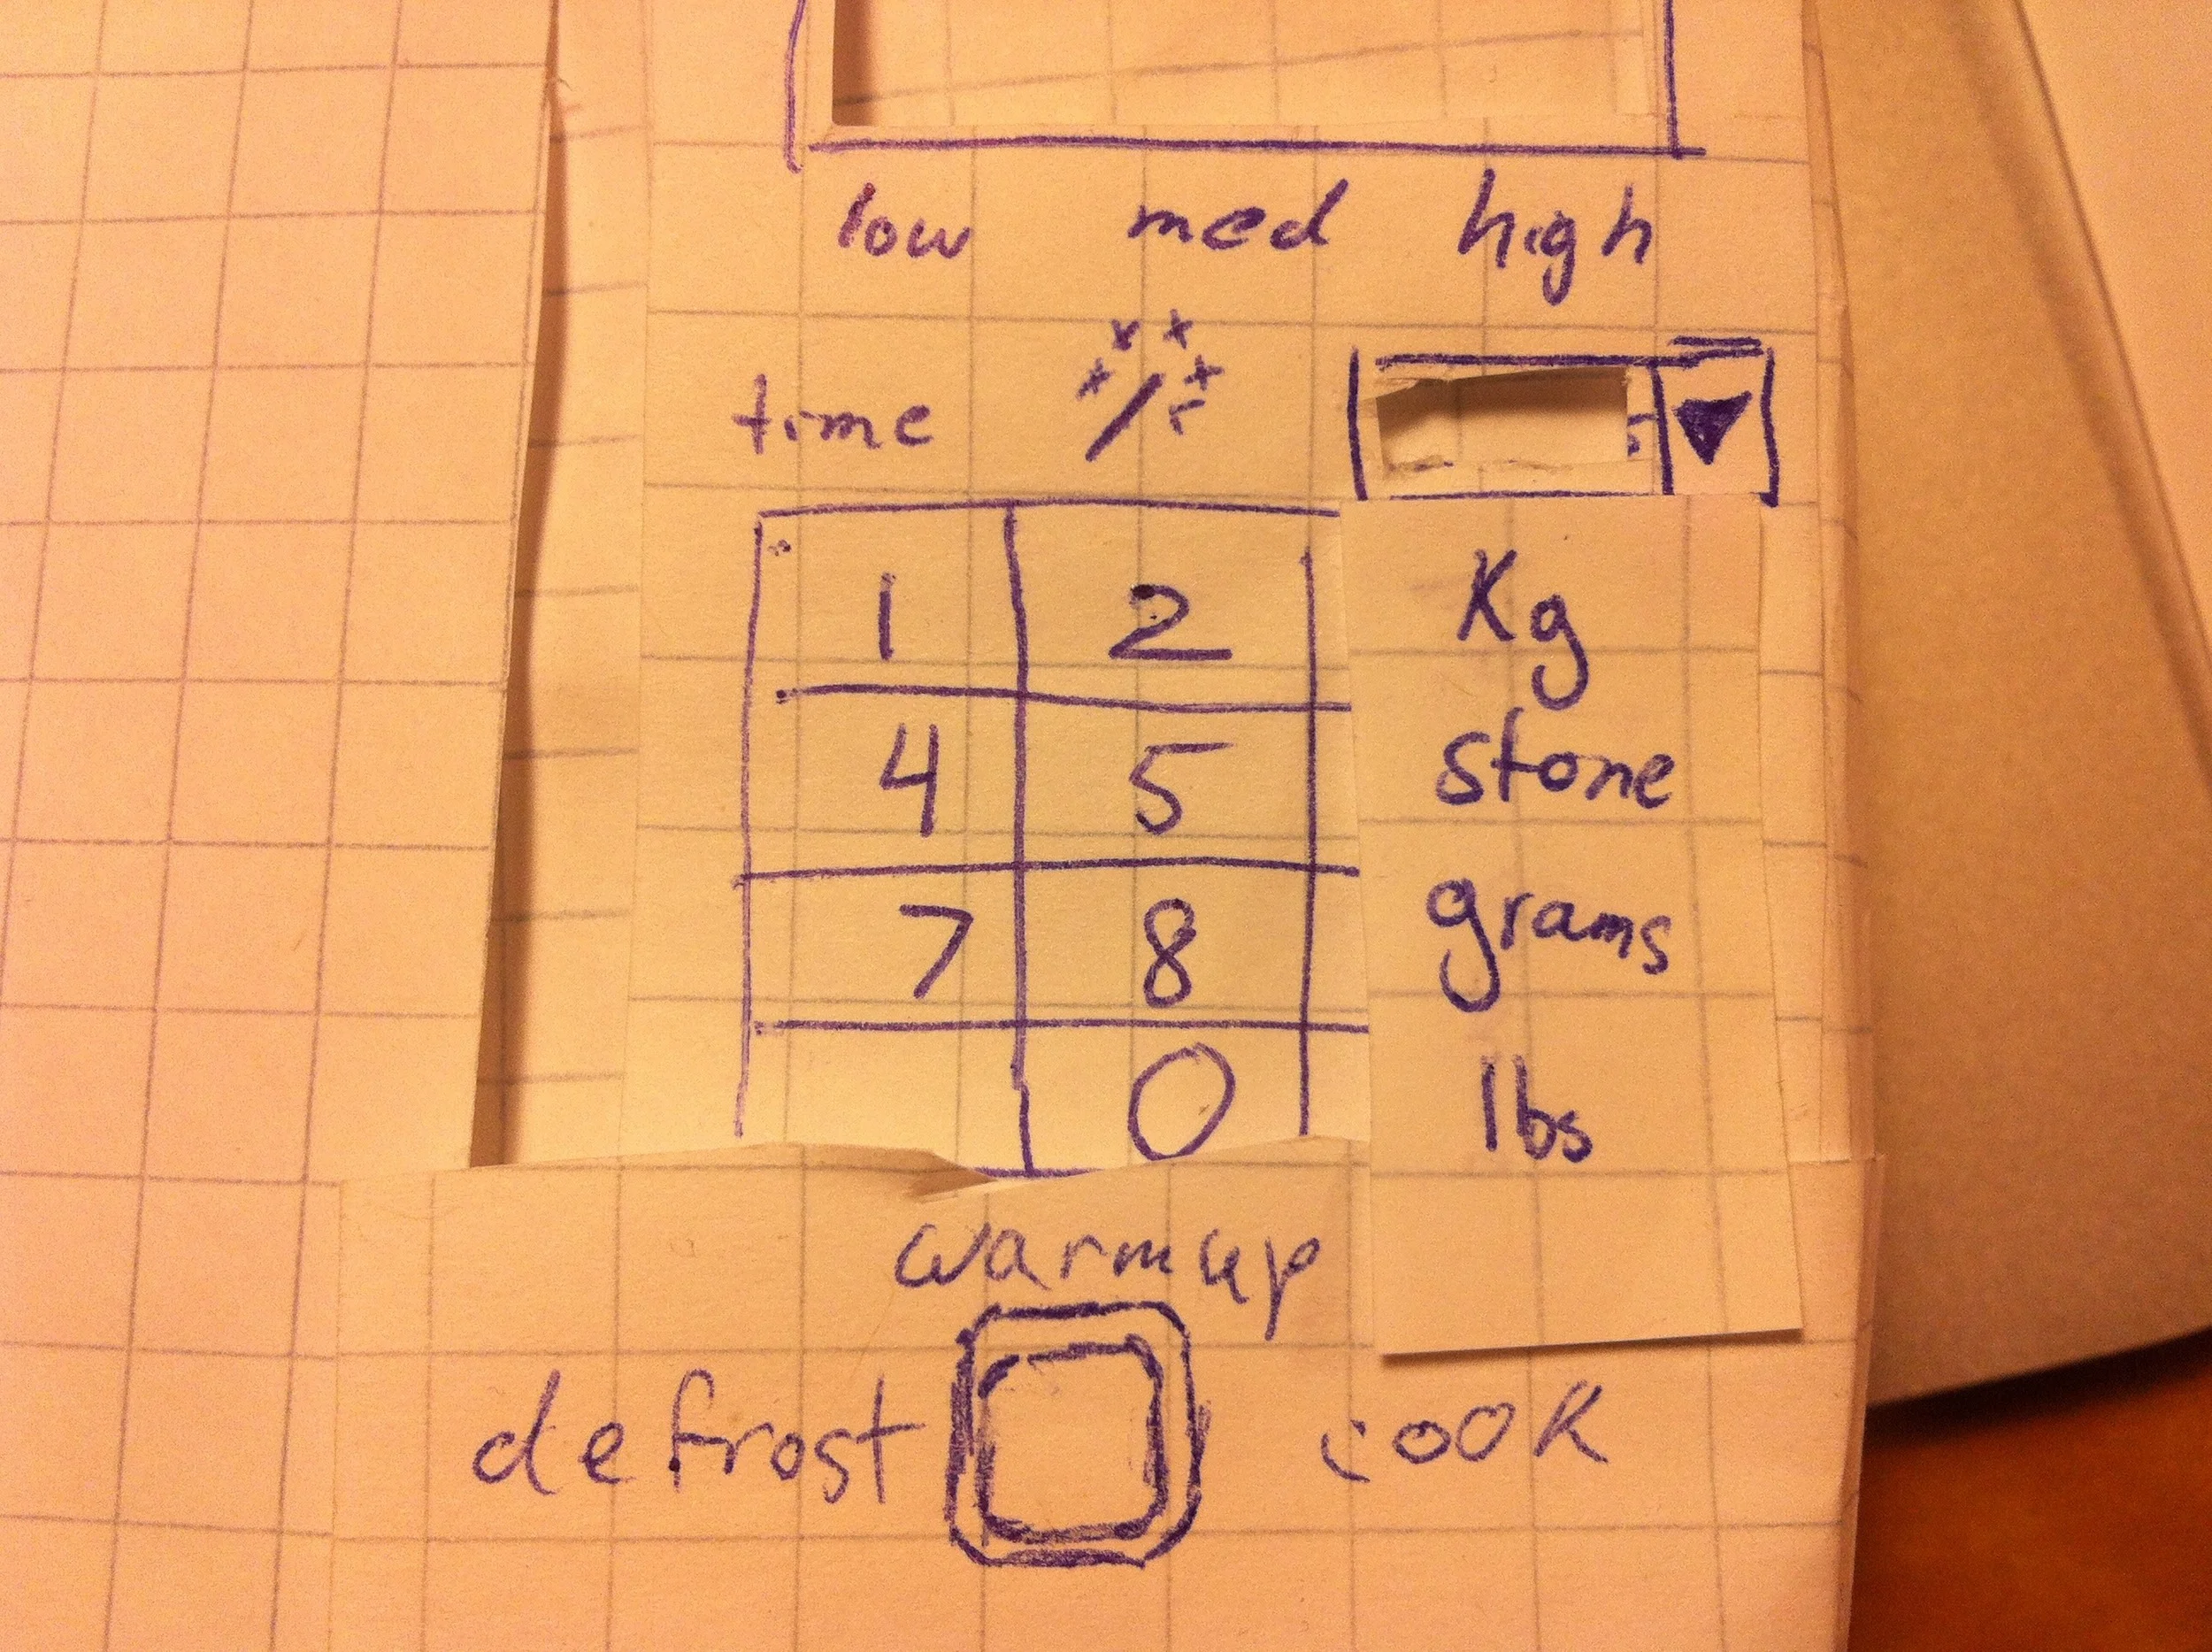 low med high
time
1 2 Kg
4 5 stone
7 8 grams
0 lbs
warmup
defrost cook